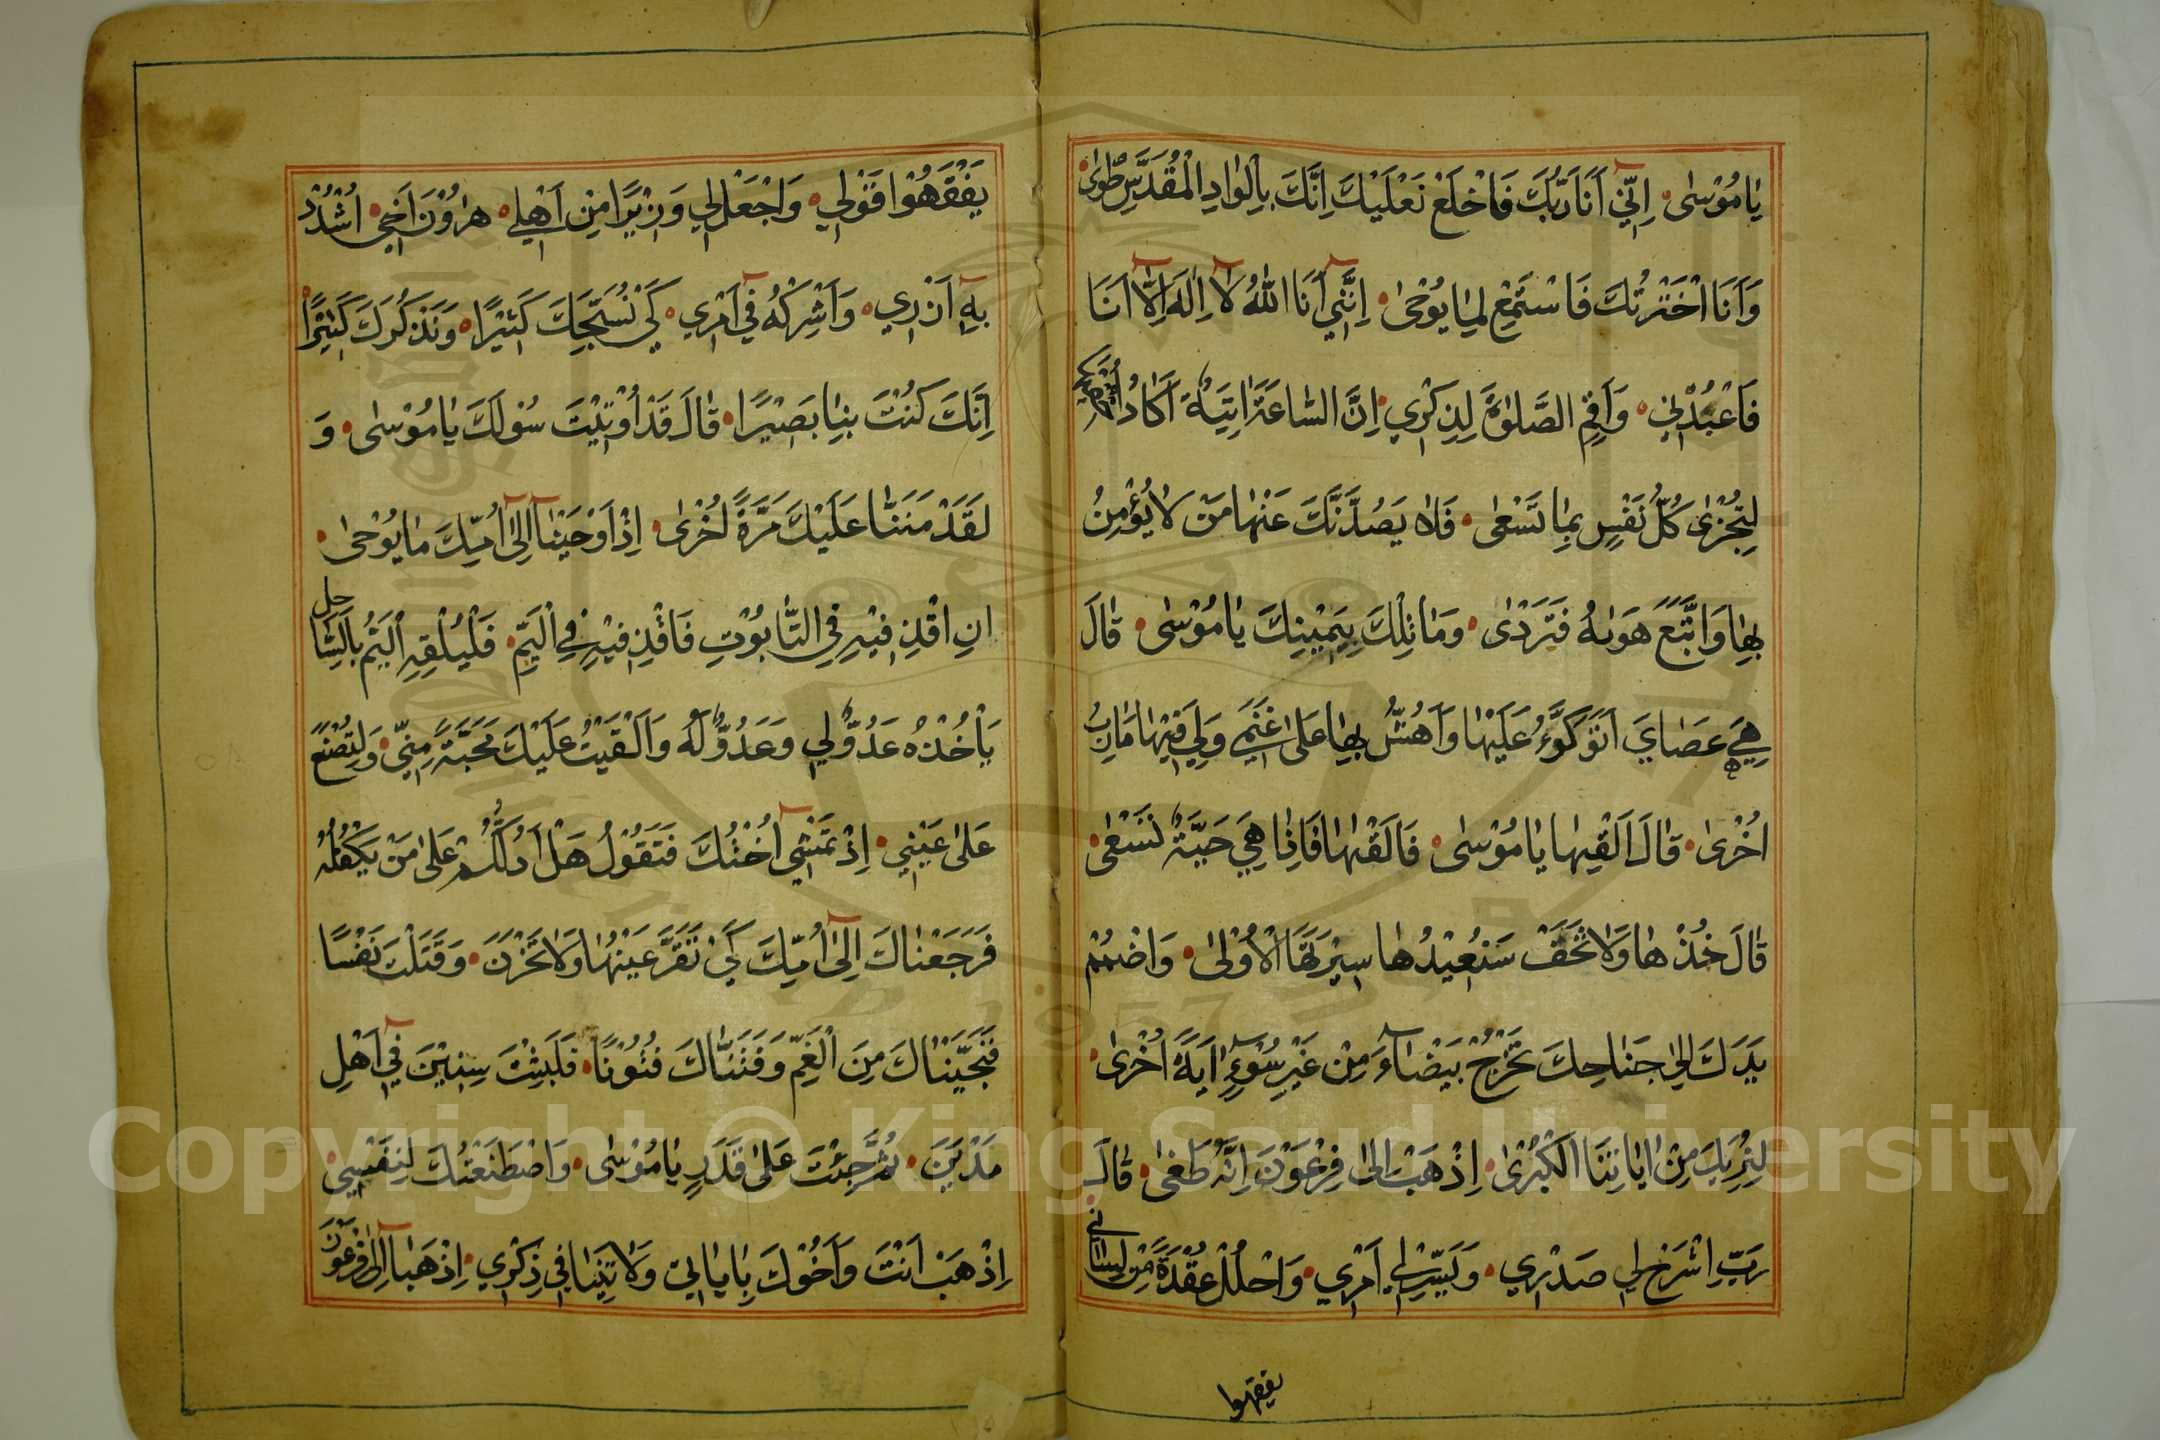 يٰامُوْسٰى اِنّيٓ اَنَا رَبُّكَ فَاخْلَعْ نَعْلَيْكَ اِنَّكَ بِالْوٰادِ الْمُقَدَّسِ طُوًى
وَاَنَا اخْتَرْتُكَ فَاسْتَمِعْ لِمٰا يُوْحٰى اِنَّنيٓ اَنَا اللّٰهُ لٰآ اِلٰهَ اِلّٰآ اَنَا
فَاعْبُدْني وَاَقِمِ الصَّلٰوةَ لِذِكْرِي اِنَّ السّٰاعَةَ اٰتِيَةٌ اَكٰادُ اُخْفِيهٰا
لِتُجْزٰى كُلُّ نَفْسٍ بِمٰا تَسْعٰى فَلاٰ يَصُدَّنَّكَ عَنْهٰا مَنْ لاٰ يُؤْمِنُ
بِهٰا وَاتَّبَعَ هَوٰىهُ فَتَرْدٰى وَمٰا تِلْكَ بِيَمِيْنِكَ يٰامُوْسٰى قٰالَ
هِيَ عَصٰايَ اَتَوَكَّؤُ عَلَيْهٰا وَاَهُشُّ بِهٰا عَلٰى غَنَمي وَلِيَ فِيْهٰا مَاٰرِبُ
اُخْرٰى قٰالَ اَلْقِهٰا يٰامُوْسٰى فَاَلْقٰهٰا فَاِذٰا هِيَ حَيَّةٌ تَسْعٰى
قٰالَ خُذْهٰا وَلاٰ تَخَفْ سَنُعِيْدُهٰا سِيْرَتَهَا الْاُوْلٰى وَاضْمُمْ
يَدَكَ اِلٰى جَنٰاحِكَ تَخْرُجْ بَيْضٰآءَ مِنْ غَيْرِ سُوْٓءٍ اٰيَةً اُخْرٰى
لِنُرِيَكَ مِنْ اٰيٰاتِنَا الْكُبْرٰى اِذْهَبْ اِلٰى فِرْعَوْنَ اِنَّهُ طَغٰى قٰالَ
رَبِّ اشْرَحْ لِي صَدْرِي وَيَسِّرْ لِي اَمْرِي وَاحْلُلْ عُقْدَةً مِنْ لِسٰاني
يفقهوا
يَفْقَهُوْا قَوْلي وَاجْعَلْ لِي وَزِيْرًا مِنْ اَهْلي هٰرُوْنَ اَخِي اشْدُدْ
بِهِٓ اَزْرِي وَاَشْرِكْهُ فيٓ اَمْرِي كَيْ نُسَبِّحَكَ كَثِيْرًا وَنَذْكُرَكَ كَثِيْرًا
اِنَّكَ كُنْتَ بِنٰا بَصِيْرًا قٰالَ قَدْ اُوْتِيْتَ سُؤْلَكَ يٰامُوْسٰى وَ
لَقَدْ مَنَنّٰا عَلَيْكَ مَرَّةً اُخْرٰى اِذْ اَوْحَيْنٰآ اِلٰىٓ اُمِّكَ مٰا يُوْحٰى
اَنِ اقْذِفِيْهِ فِي التّٰابُوْتِ فَاقْذِفِيْهِ فِي الْيَمِّ فَلْيُلْقِهِ الْيَمُّ بِالسّٰاحِلِ
يَأْخُذْهُ عَدُوٌّ لِي وَعَدُوٌّ لَهُ وَاَلْقَيْتُ عَلَيْكَ مَحَبَّةً مِنّي وَلِتُصْنَعَ
عَلٰى عَيْني اِذْ تَمْشيٓ اُخْتُكَ فَتَقُوْلُ هَلْ اَدُلُّكُمْ عَلٰى مَنْ يَكْفُلُهُ
فَرَجَعْنٰاكَ اِلٰىٓ اُمِّكَ كَيْ تَقَرَّ عَيْنُهٰا وَلاٰ تَحْزَنَ وَقَتَلْتَ نَفْسًا
فَنَجَّيْنٰاكَ مِنَ الْغَمِّ وَفَتَنّٰاكَ فُتُوْنًا فَلَبِثْتَ سِنِيْنَ فيٓ اَهْلِ
مَدْيَنَ ثُمَّ جِئْتَ عَلٰى قَدَرٍ يٰامُوْسٰى وَاصْطَنَعْتُكَ لِنَفْسي
اِذْهَبْ اَنْتَ وَاَخُوْكَ بِاٰيٰاتي وَلاٰ تَنِيٰا فِي ذِكْرِي اِذْهَبٰآ اِلٰى فِرْعَوْنَ
Copyright © King Saud University